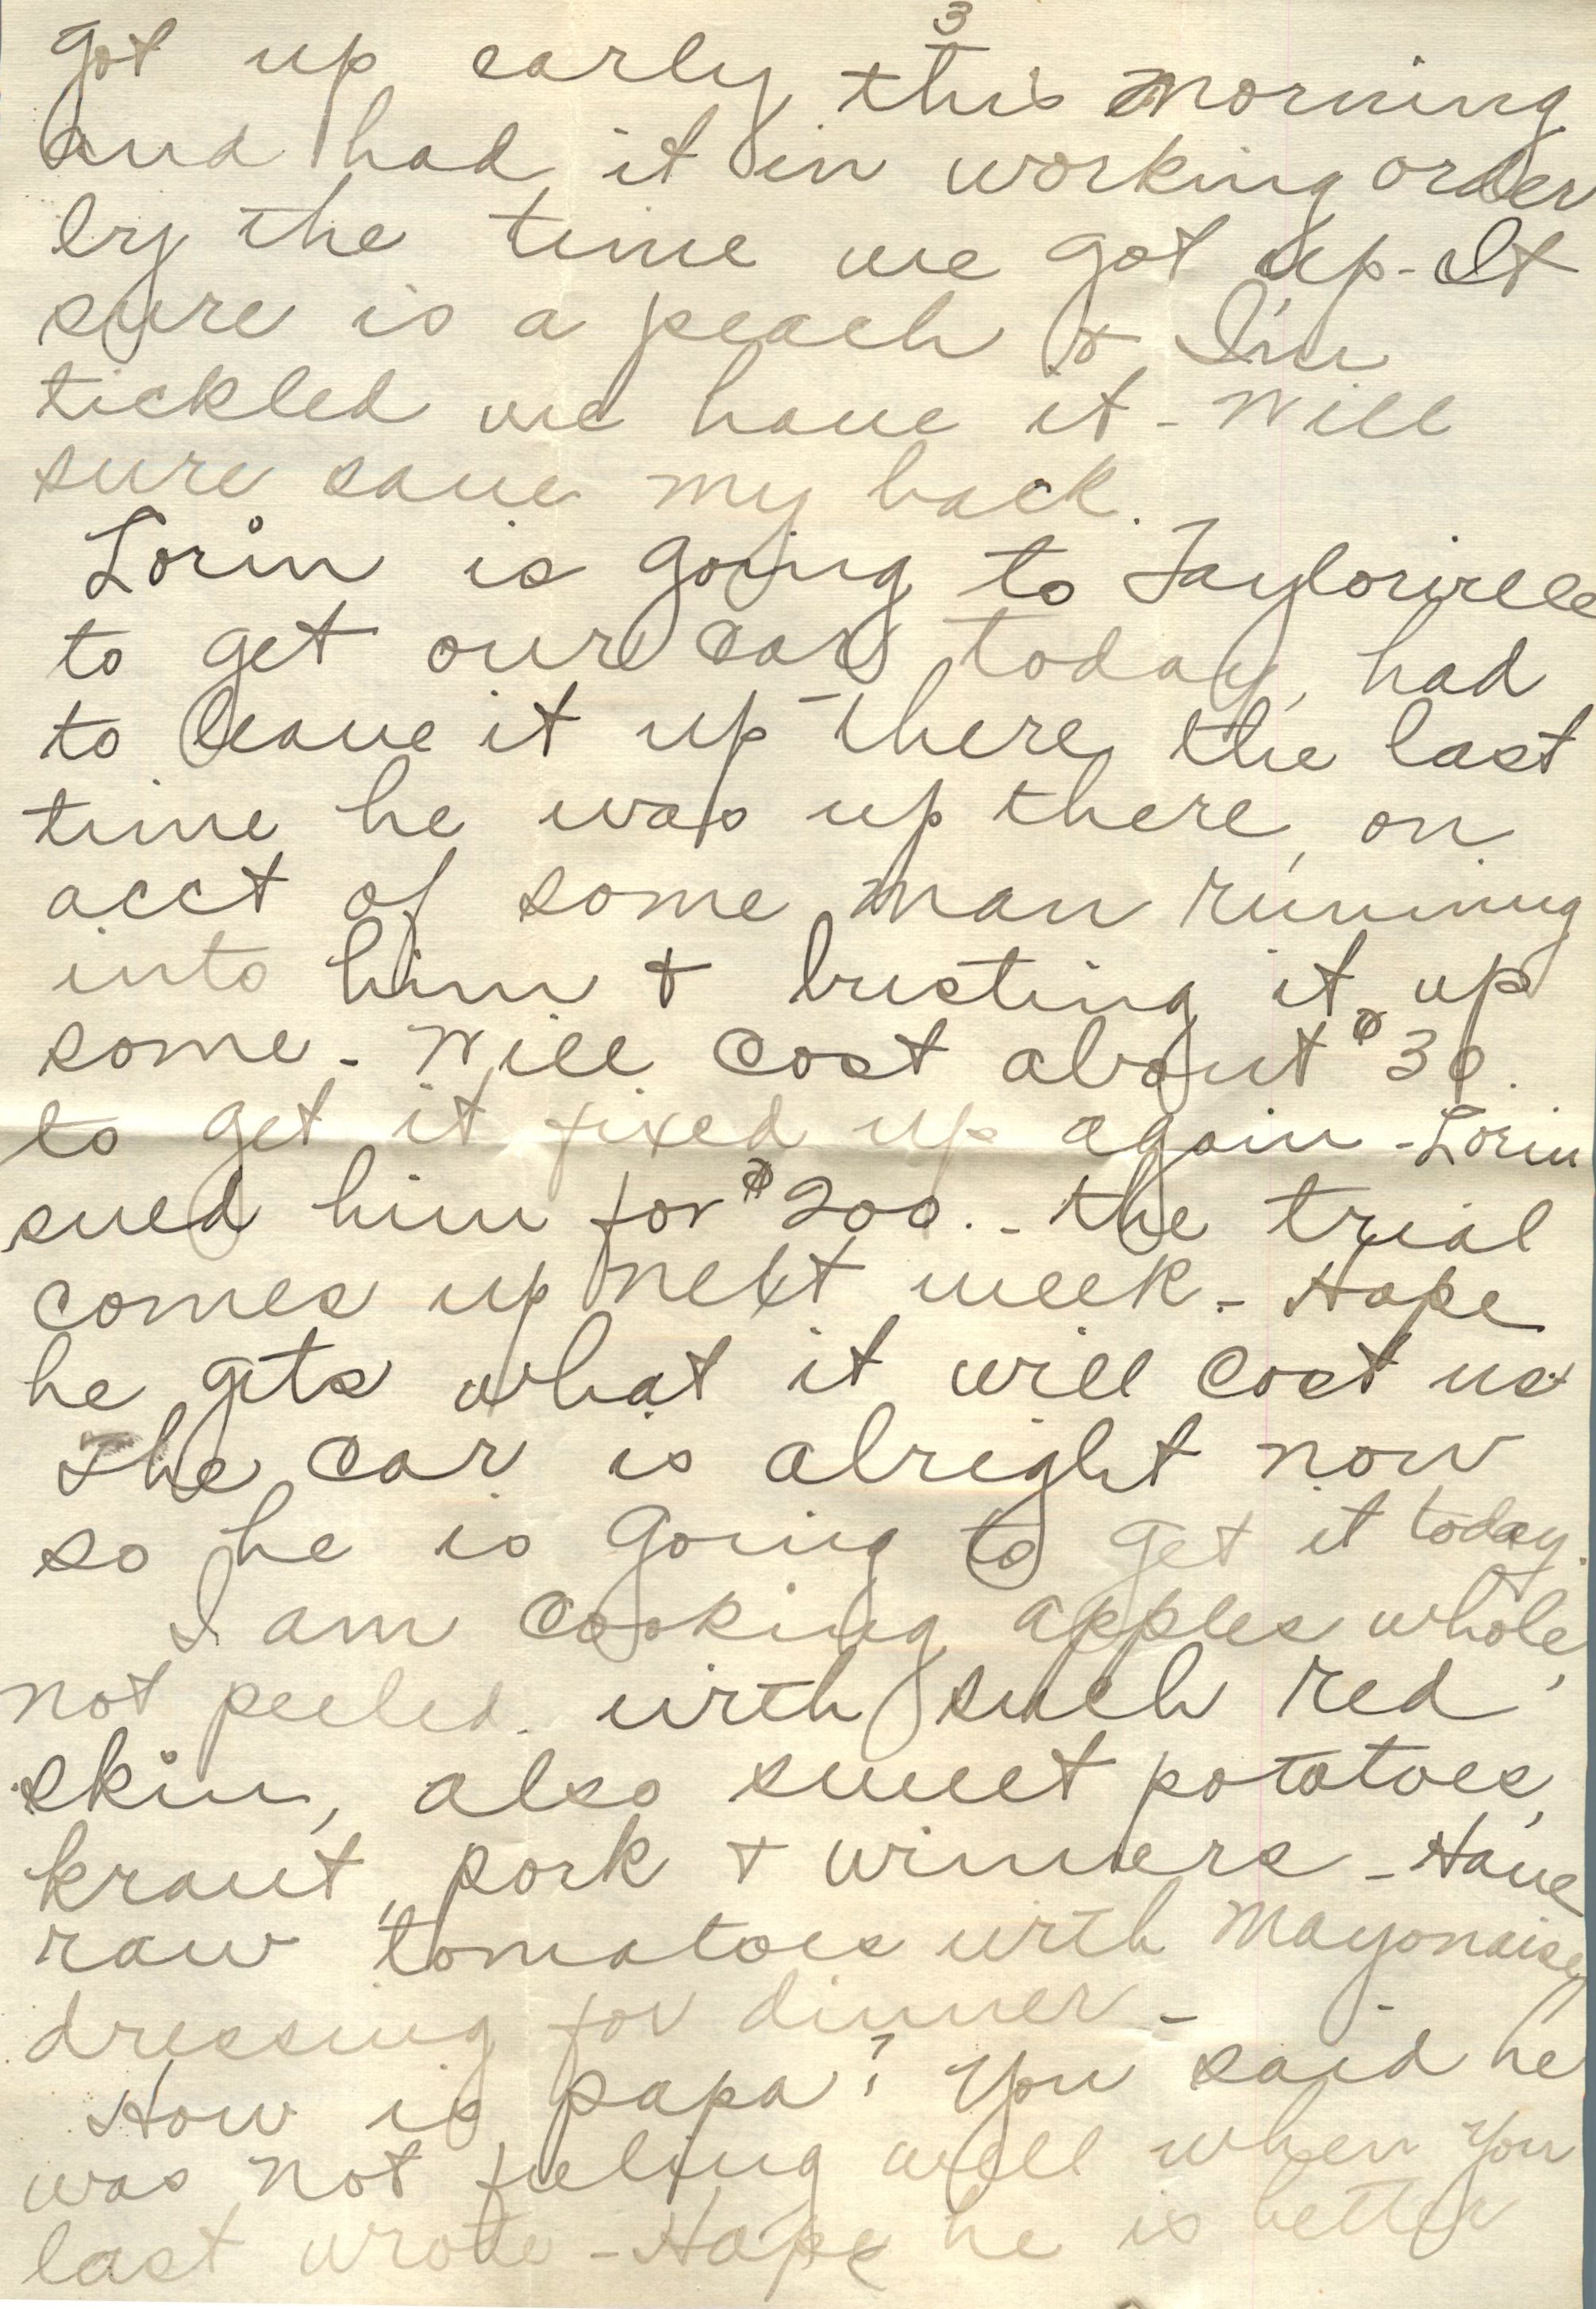 3
got up early this morning
and had it in working order
by the time we got up - It
sure is a peach & I'm
tickled we have it - Will
sure save my back.
Lorin is going to Taylorville
to get our car today, had
to leave it up there the last
time he was up there, on
acct of some man running
into him & busting it up
some - Will cost about $30.
to get it fixed up again - Lorin
sued him for $200. - the trial
comes up next week - Hope
he gets what it will cost us
The car is alright now
so he is going to get it today.
I am cooking apples whole,
not peeled. with such red
skin, also sweet potatoes,
kraut, pork & winners - Have
raw tomatoes with Mayonaise
dressing for dinner -
How is papa? You said he
was not feeling well when you
last wrote - Hope he is better